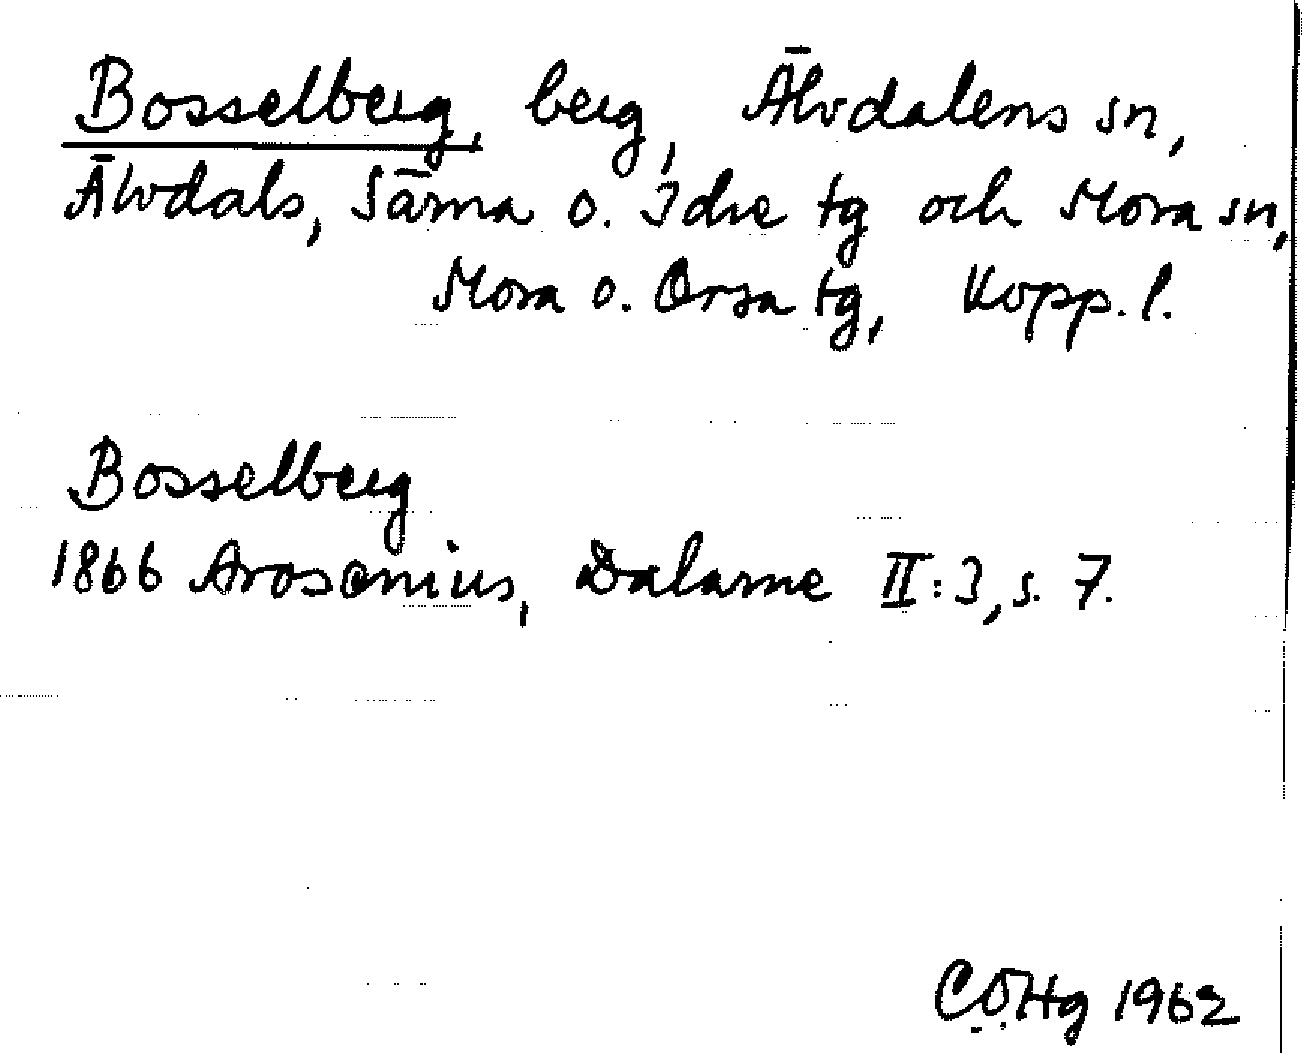 Bosselberg, berg, Älvdalens sn,
Älvdals, Särna o. Idre tg och Mora sn,
Mora o. Orsa tg, Kopp. l.
Bosselberg
1866 Arosenius, Dalarne II:3, s. 7.
CÖHg 1962